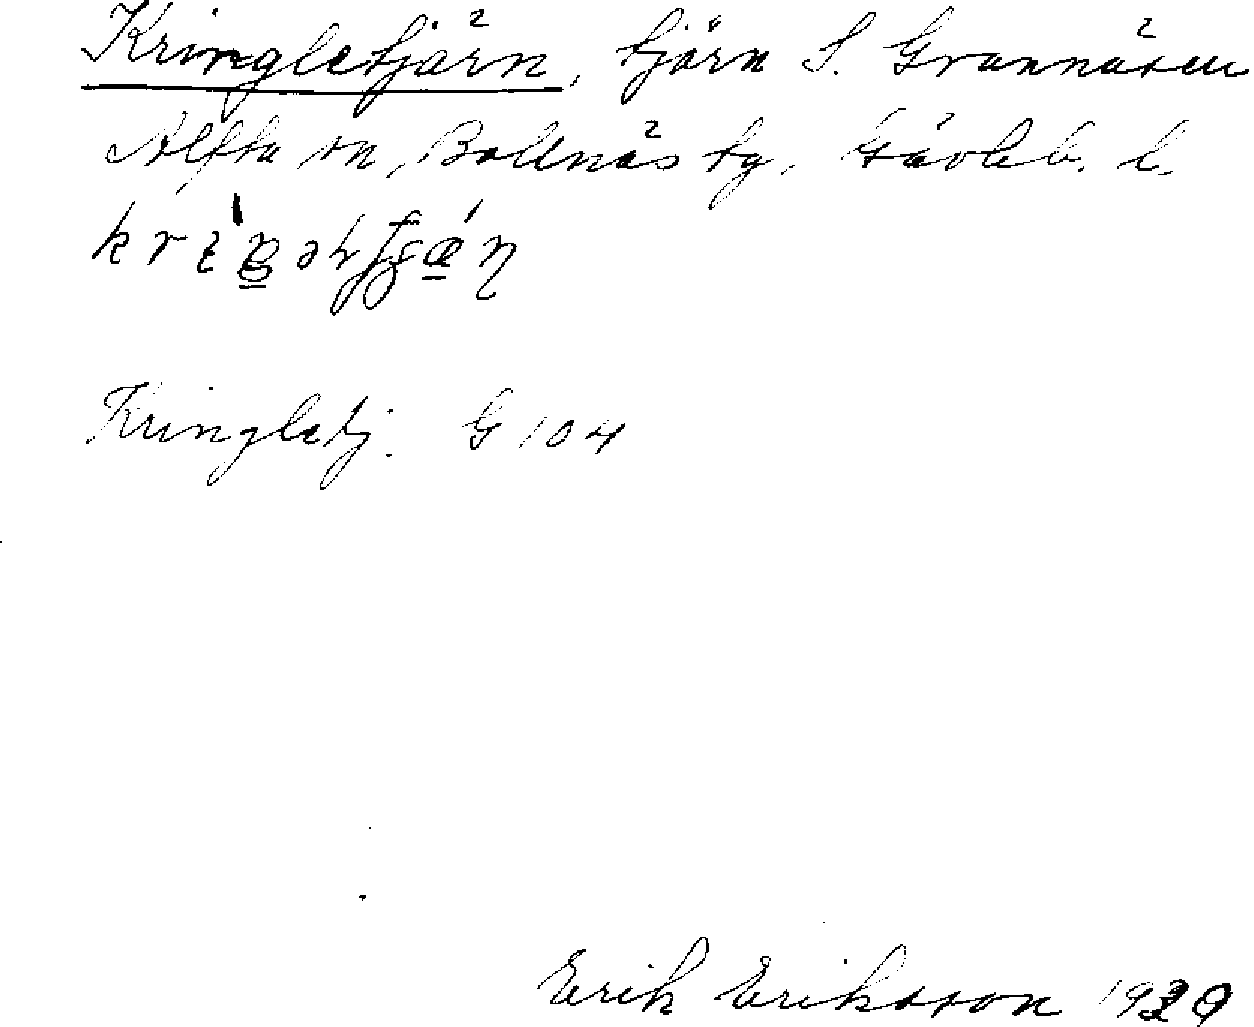 Kringletjärn, tjärn S. Grannäsen
Alfta sn, Bollnäs tg, Gävleb. l.
Kringletj. G 104
Erik Eriksson